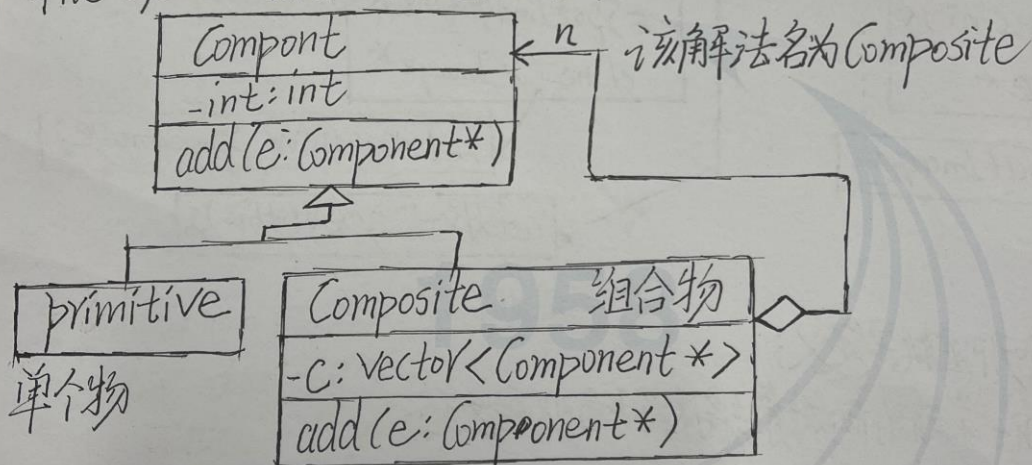 Compont
-int:int
add(e:Component*)
n
该解法名为Composite
primitive
单个物
Composite 组合物
-C: vector<Component *>
add(e:Component*)
1958